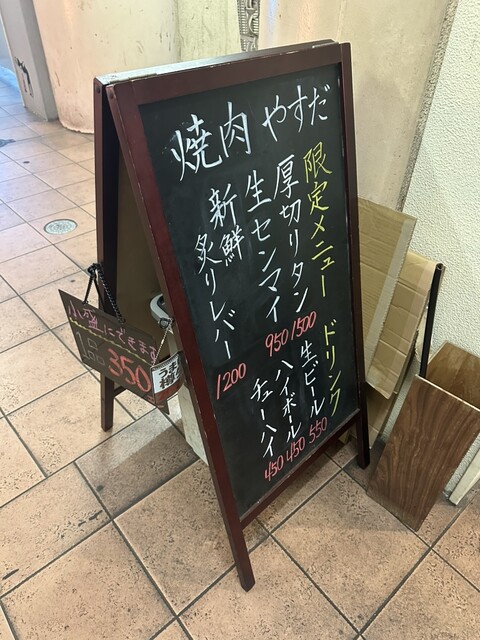 焼肉 やすだ
限定メニュー
厚切りタン 1500
生センマイ 950
新鮮
炙りレバー 1200
ドリンク
生ビール 550
ハイボール 450
チューハイ 450
小盛にできます
1品 350